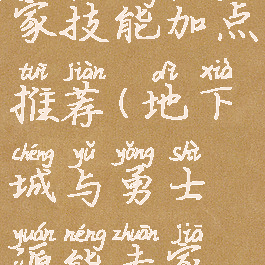 家技能加点
tuī jiàn dì xià
推荐(地下
chéng yǔ yǒng shì
城与勇士
yuán néng zhuān jiā
源能专家